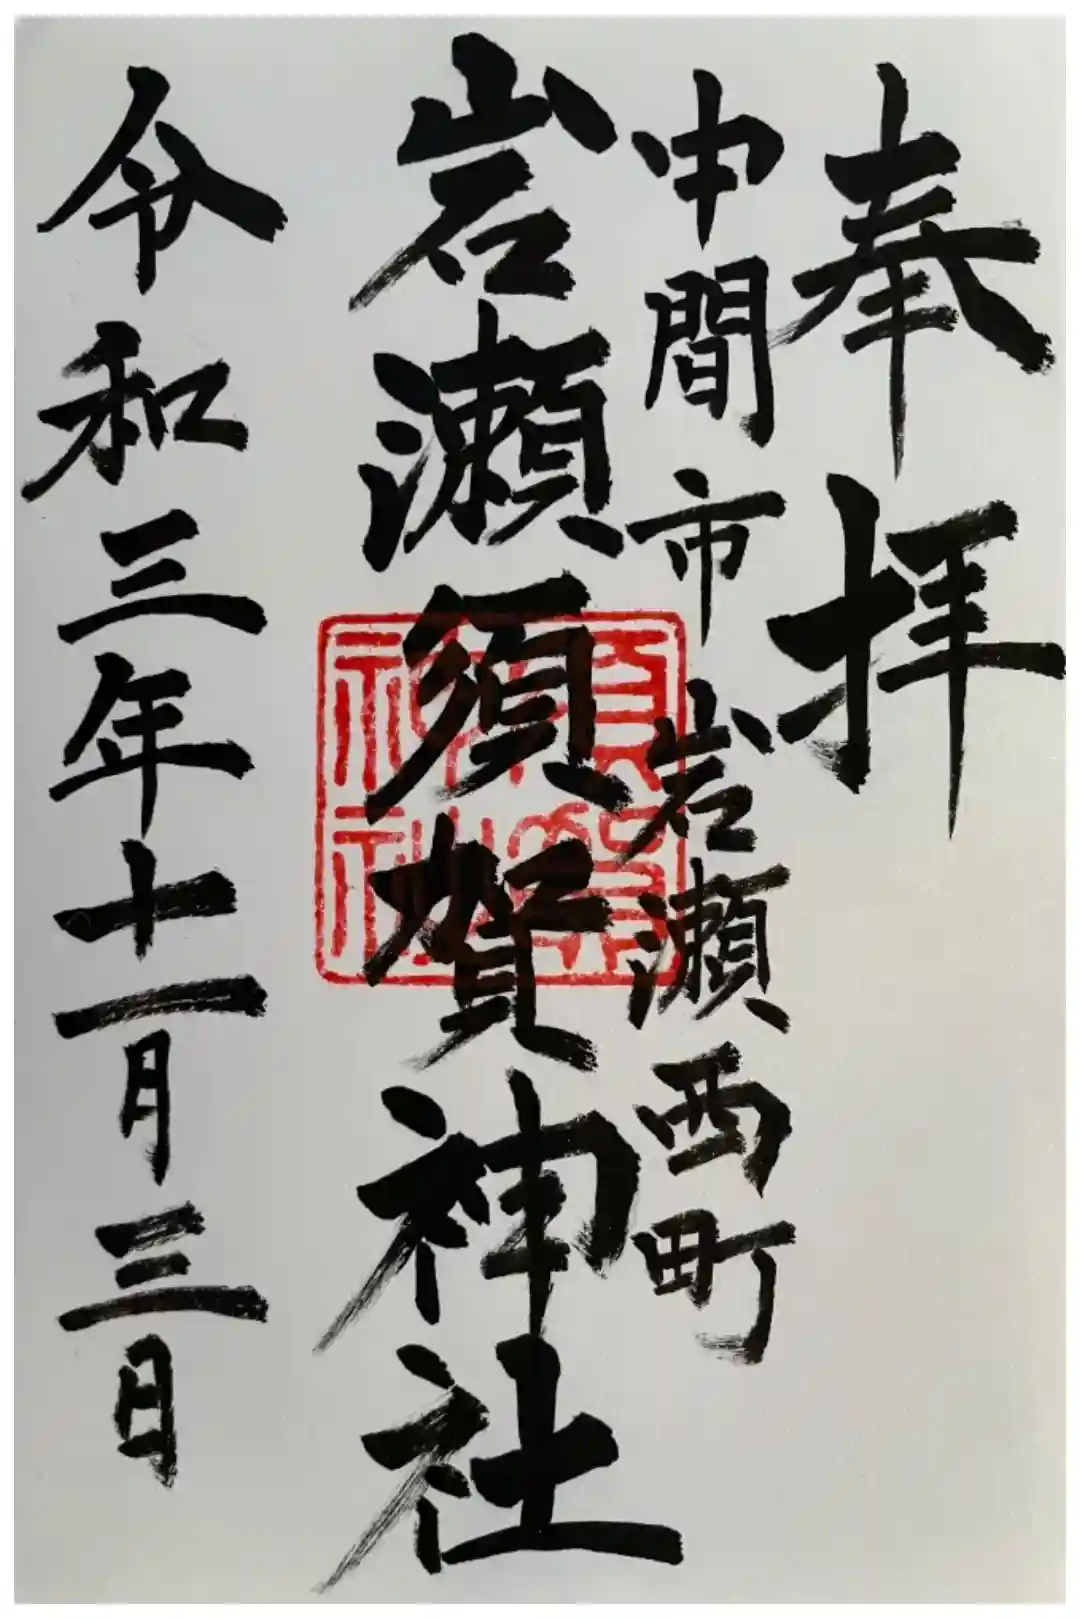 奉拝
中間市岩瀬西町
岩瀬須賀神社
令和三年十一月三日